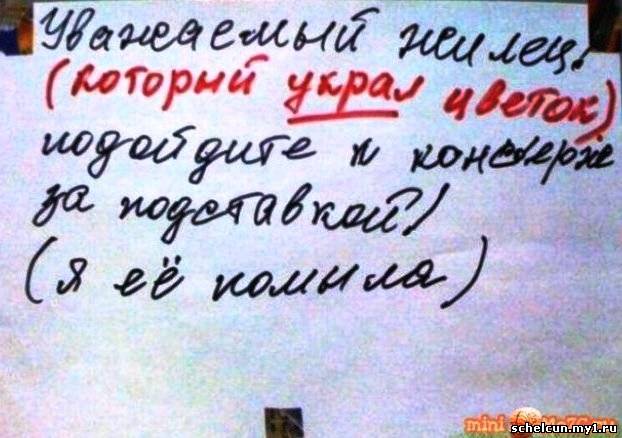 Уважаемый жилец!
(который украл цветок)
подойдите к консьерже
за подставкой!
(я её помыла)
schelcun.my1.ru